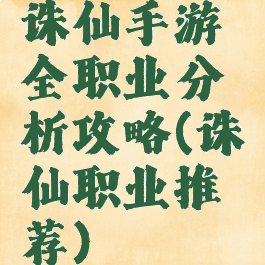 诛仙手游
全职业分
析攻略(诛
仙职业推
荐)